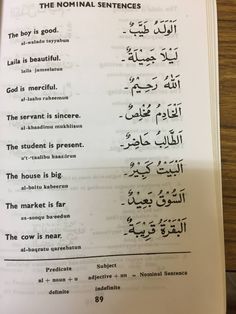 THE NOMINAL SENTENCES
The boy is good. اَلْوَلَدُ طَيِّبٌ ـ
al-waladu tayyabun
Laila is beautiful. لَيْلَا جَمِيْلَةٌ ـ
leila jameelatun
God is merciful. اَللهُ رَحِيْمٌ ـ
al-laahu raheemun
The servant is sincere. اَلْخَادِمُ مُخْلِصٌ ـ
al-khaadimu mukhlisun
The student is present. اَلطَّالِبُ حَاضِرٌ ـ
a't-'taalibu haazirun
The house is big. اَلْبَيْتُ كَبِيْرٌ ـ
al-baitu kabeerun
The market is far اَلسُّوْقُ بَعِيْدٌ ـ
as-sooqu ba'eedun
The cow is near. اَلْبَقَرَةُ قَرِيْبَةٌ ـ
al-baqratu qareebatun
Predicate Subject
al + noun + u adjective + un = Nominal Sentence
definite indefinite
89